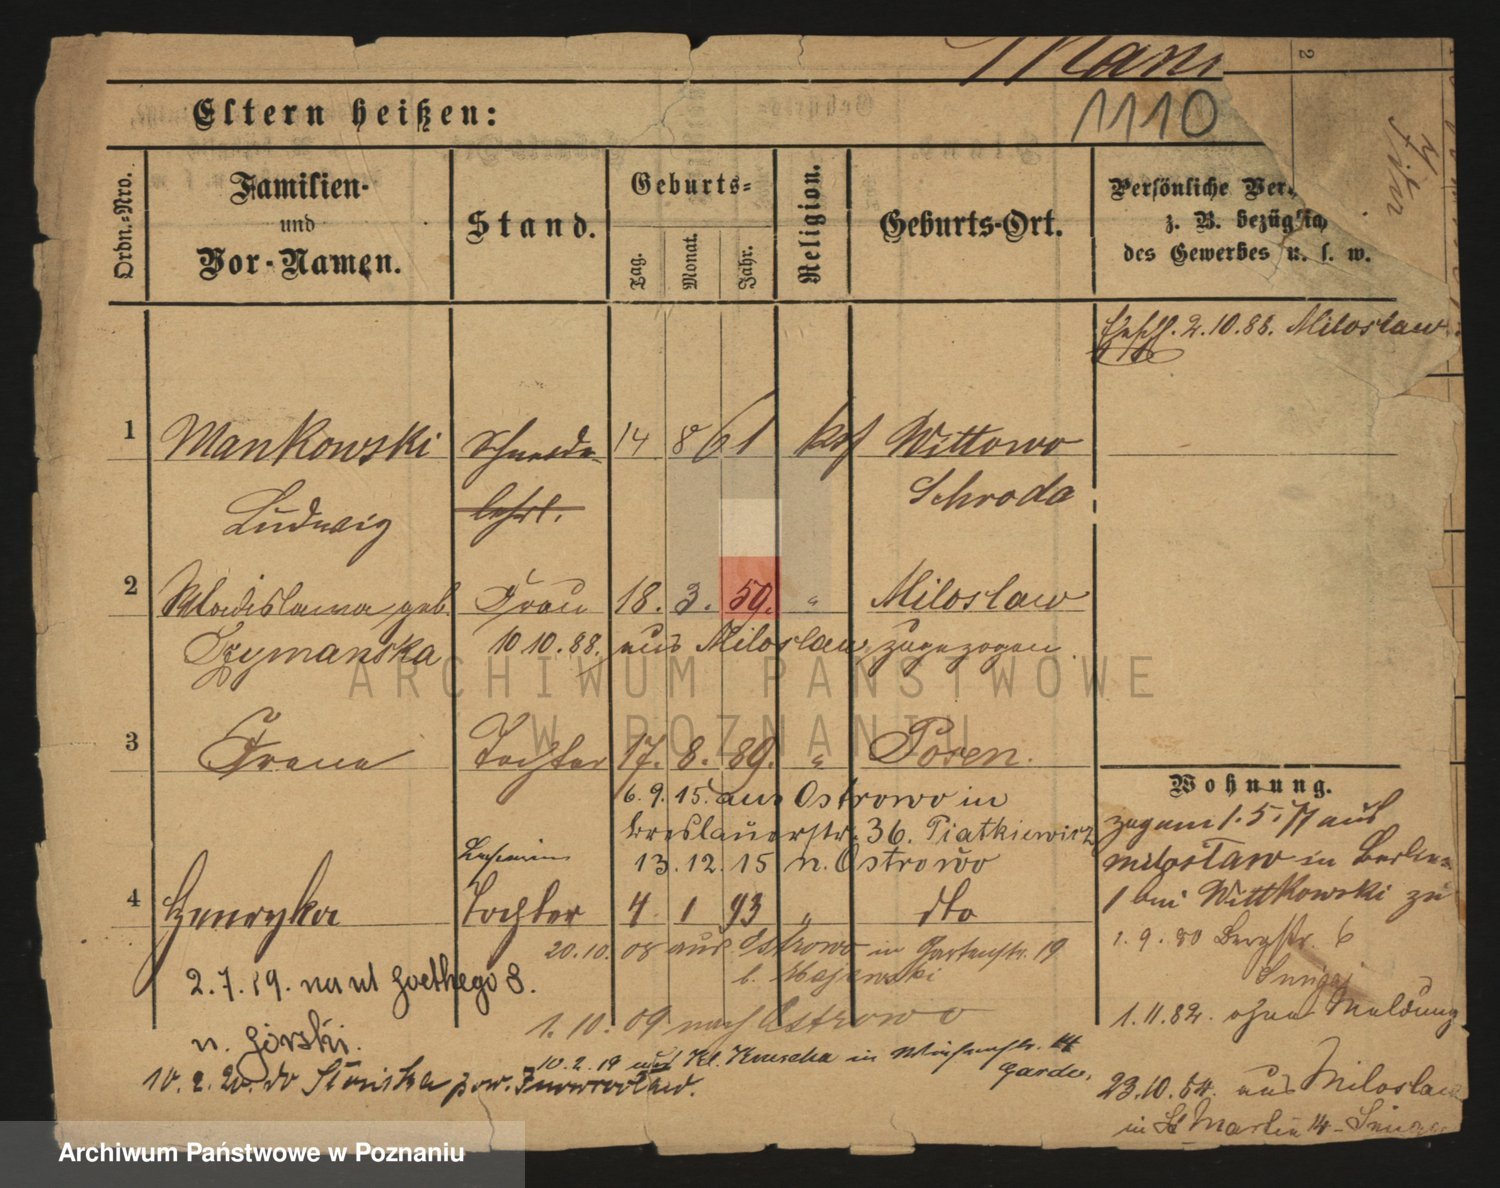 Mank
1110
2
Eltern heißen:
Ordn.-Nro.
Familien-
und
Vor-Namen.
Stand.
Geburts-
Tag.
Monat.
Jahr.
Religion.
Geburts-Ort.
Persönliche Ver
z. B. bezüglich
des Gewerbes u. s. w.
2.10.88. Miloslaw
1 Mankowski Schneider 14 8 61 kath Wittowo
Ludwig lehrl. Schroda
2 Wladislawa geb. Frau 18. 3. 59. " Miloslaw
Szymanska 10 10. 88. aus Miloslaw zugezogen
3 Irene Tochter 17. 8. 89. " Posen.
6. 9. 15. aus Ostrowo in
Breslauerstr. 36. Piatkiewicz
13. 12. 15 n. Ostrowo
4 Henryka Tochter 4 1 93 " dto
20.10. 08 aus Ostrowo in Gartenstr. 19
b. Majewski
2.7.19. na ul Goethego 8.
u. Górski.
1. 10. 09 nach Ostrowo
10. 2. 19 aus Kl. Kruscha in
10. 2. 20. do Słońska pow. Inowrocław.
Wohnung.
zog am 1. 5. 77 aus
Miloslaw in
1 bei Wittkowski zu
1. 9. 80 Bergstr. 6
1. 11. 82. ohne Meldung
23.10.84. aus Miloslaw
in St Martin 14
ARCHIWUM PAŃSTWOWE
W POZNANIU
Archiwum Państwowe w Poznaniu